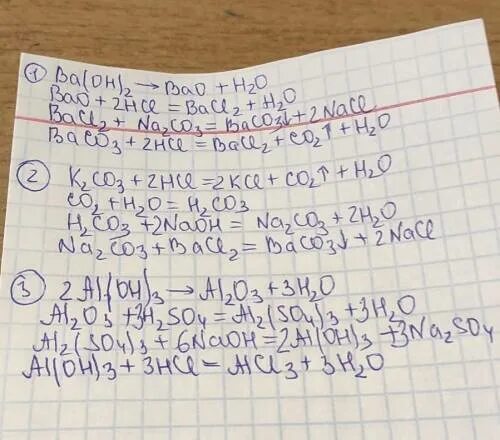 ① Ba(OH)₂ → BaO + H₂O
BaO + 2HCl = BaCl₂ + H₂O
BaCl₂ + Na₂CO₃ = BaCO₃↓ + 2NaCl
BaCO₃ + 2HCl = BaCl₂ + CO₂↑ + H₂O
② K₂CO₃ + 2HCl = 2KCl + CO₂↑ + H₂O
CO₂ + H₂O = H₂CO₃
H₂CO₃ + 2NaOH = Na₂CO₃ + 2H₂O
Na₂CO₃ + BaCl₂ = BaCO₃↓ + 2NaCl
③ 2Al(OH)₃ → Al₂O₃ + 3H₂O
Al₂O₃ + 3H₂SO₄ = Al₂(SO₄)₃ + 3H₂O
Al₂(SO₄)₃ + 6NaOH = 2Al(OH)₃ + 3Na₂SO₄
Al(OH)₃ + 3HCl = AlCl₃ + 3H₂O